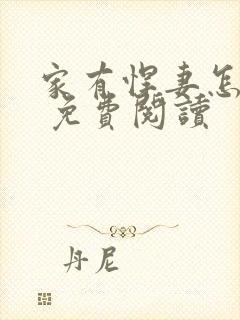 家有悍妻怎
免費閱讀
丹尼